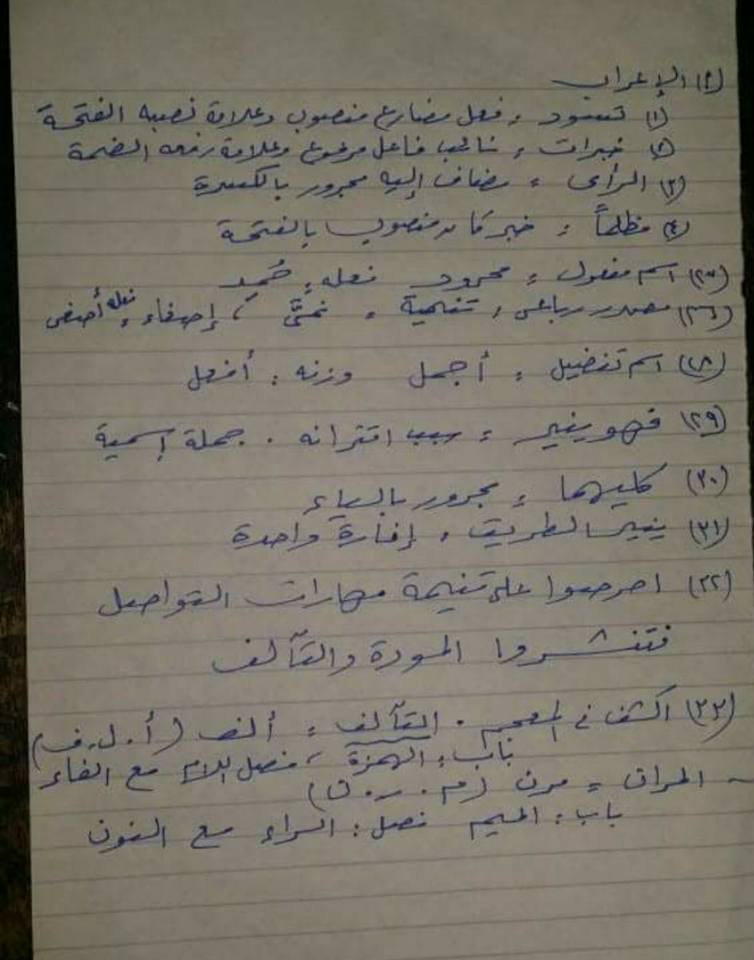 (٢) الإعراب
(١) تسود ، فعل مضارع منصوب وعلامة نصبه الفتحة
(٢) خبرات ، نائب فاعل مرفوع وعلامة رفعه الضمة
(٣) الرأى ، مضاف إليه مجرور بالكسرة
(٤) مظلماً : خبر كان منصوب بالفتحة
(٢٥) اسم مفعول ، محمود فعله ، حُمِد
(٢٦) مصدر رباعى ، تنمية ، نمَّى ، إصغاء ، فعله أصغى
(٢٨) اسم تفضيل ، أجمل وزنه : أفعل
(٢٩) فهو ينير ، سبب اقترانه . جملة إسمية
(٣٠) كليهما ، مجرور بالياء
(٣١) ينير الطريق ، إفادة واحدة
(٣٢) احرصوا على تنمية مهارات التواصل
فتنشروا المودة والتآلف
(٣٣) اكشف فى المعجم . التآلف ، ألف (أ . ل . ف)
باب : الهمزة ، فصل اللام مع الفاء
- المران = مرن (م . ر . ن)
باب : الميم فصل : الراء مع النون